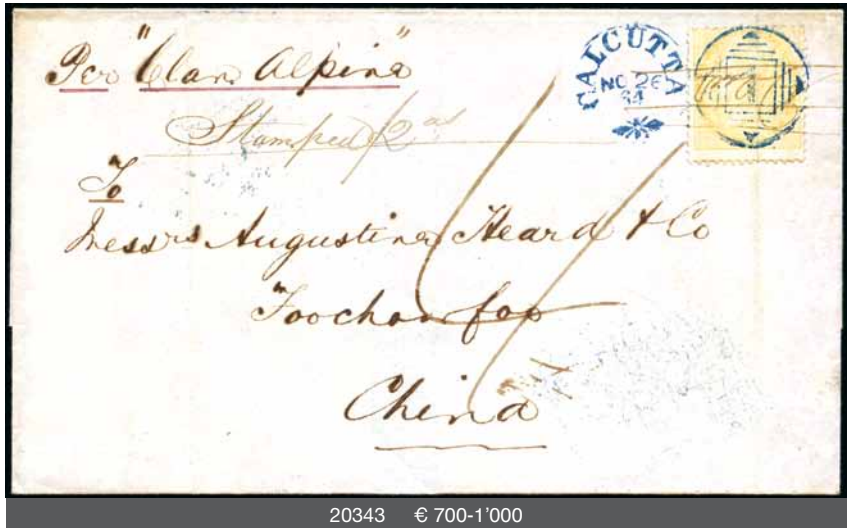 Per "Clan Alpine"
CALCUTTA
NO 26
64
Stamped /2 as
To
Messrs Augustine Heard & Co
Foochowfoo
China
20343 € 700-1'000